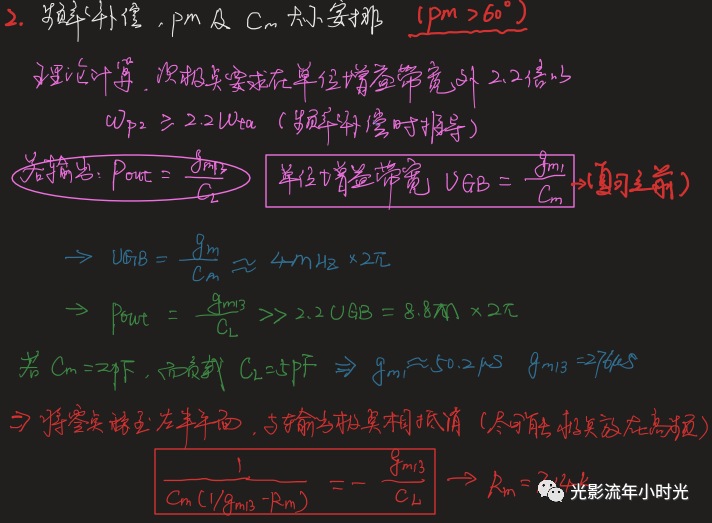 2. 频率补偿，pm 及 Cm 大小安排 (pm > 60°)
理论计算，次极点要求在单位增益带宽外 2.2倍的
ωp2 ≥ 2.2ωta (频率补偿时推导)
若输出: Pout = gm13/CL 单位增益带宽 UGB = gm1/Cm →(直到之前)
→ UGB = gm/Cm ≈ 4MHz × 2π
→ Pout = gm13/CL >> 2.2UGB = 8.8M × 2π
若 Cm = 2pF，而负载 CL = 5pF ⇒ gm1 ≈ 50.2μS gm13 = 276μS
⇒ 将零点移至左半平面，与输出极点相抵消 (尽可能极点放在高频)
1/(Cm(1/gm13 - Rm)) = - gm13/CL → Rm =
光影流年小时光